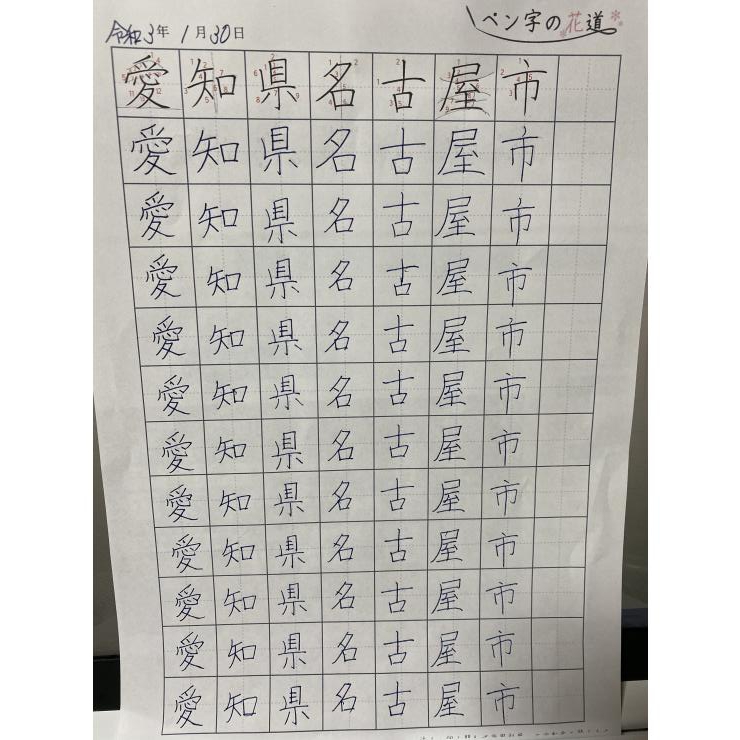 令和3年1月30日
ペン字の花道
愛知県名古屋市
愛知県名古屋市
愛知県名古屋市
愛知県名古屋市
愛知県名古屋市
愛知県名古屋市
愛知県名古屋市
愛知県名古屋市
愛知県名古屋市
愛知県名古屋市
愛知県名古屋市
愛知県名古屋市